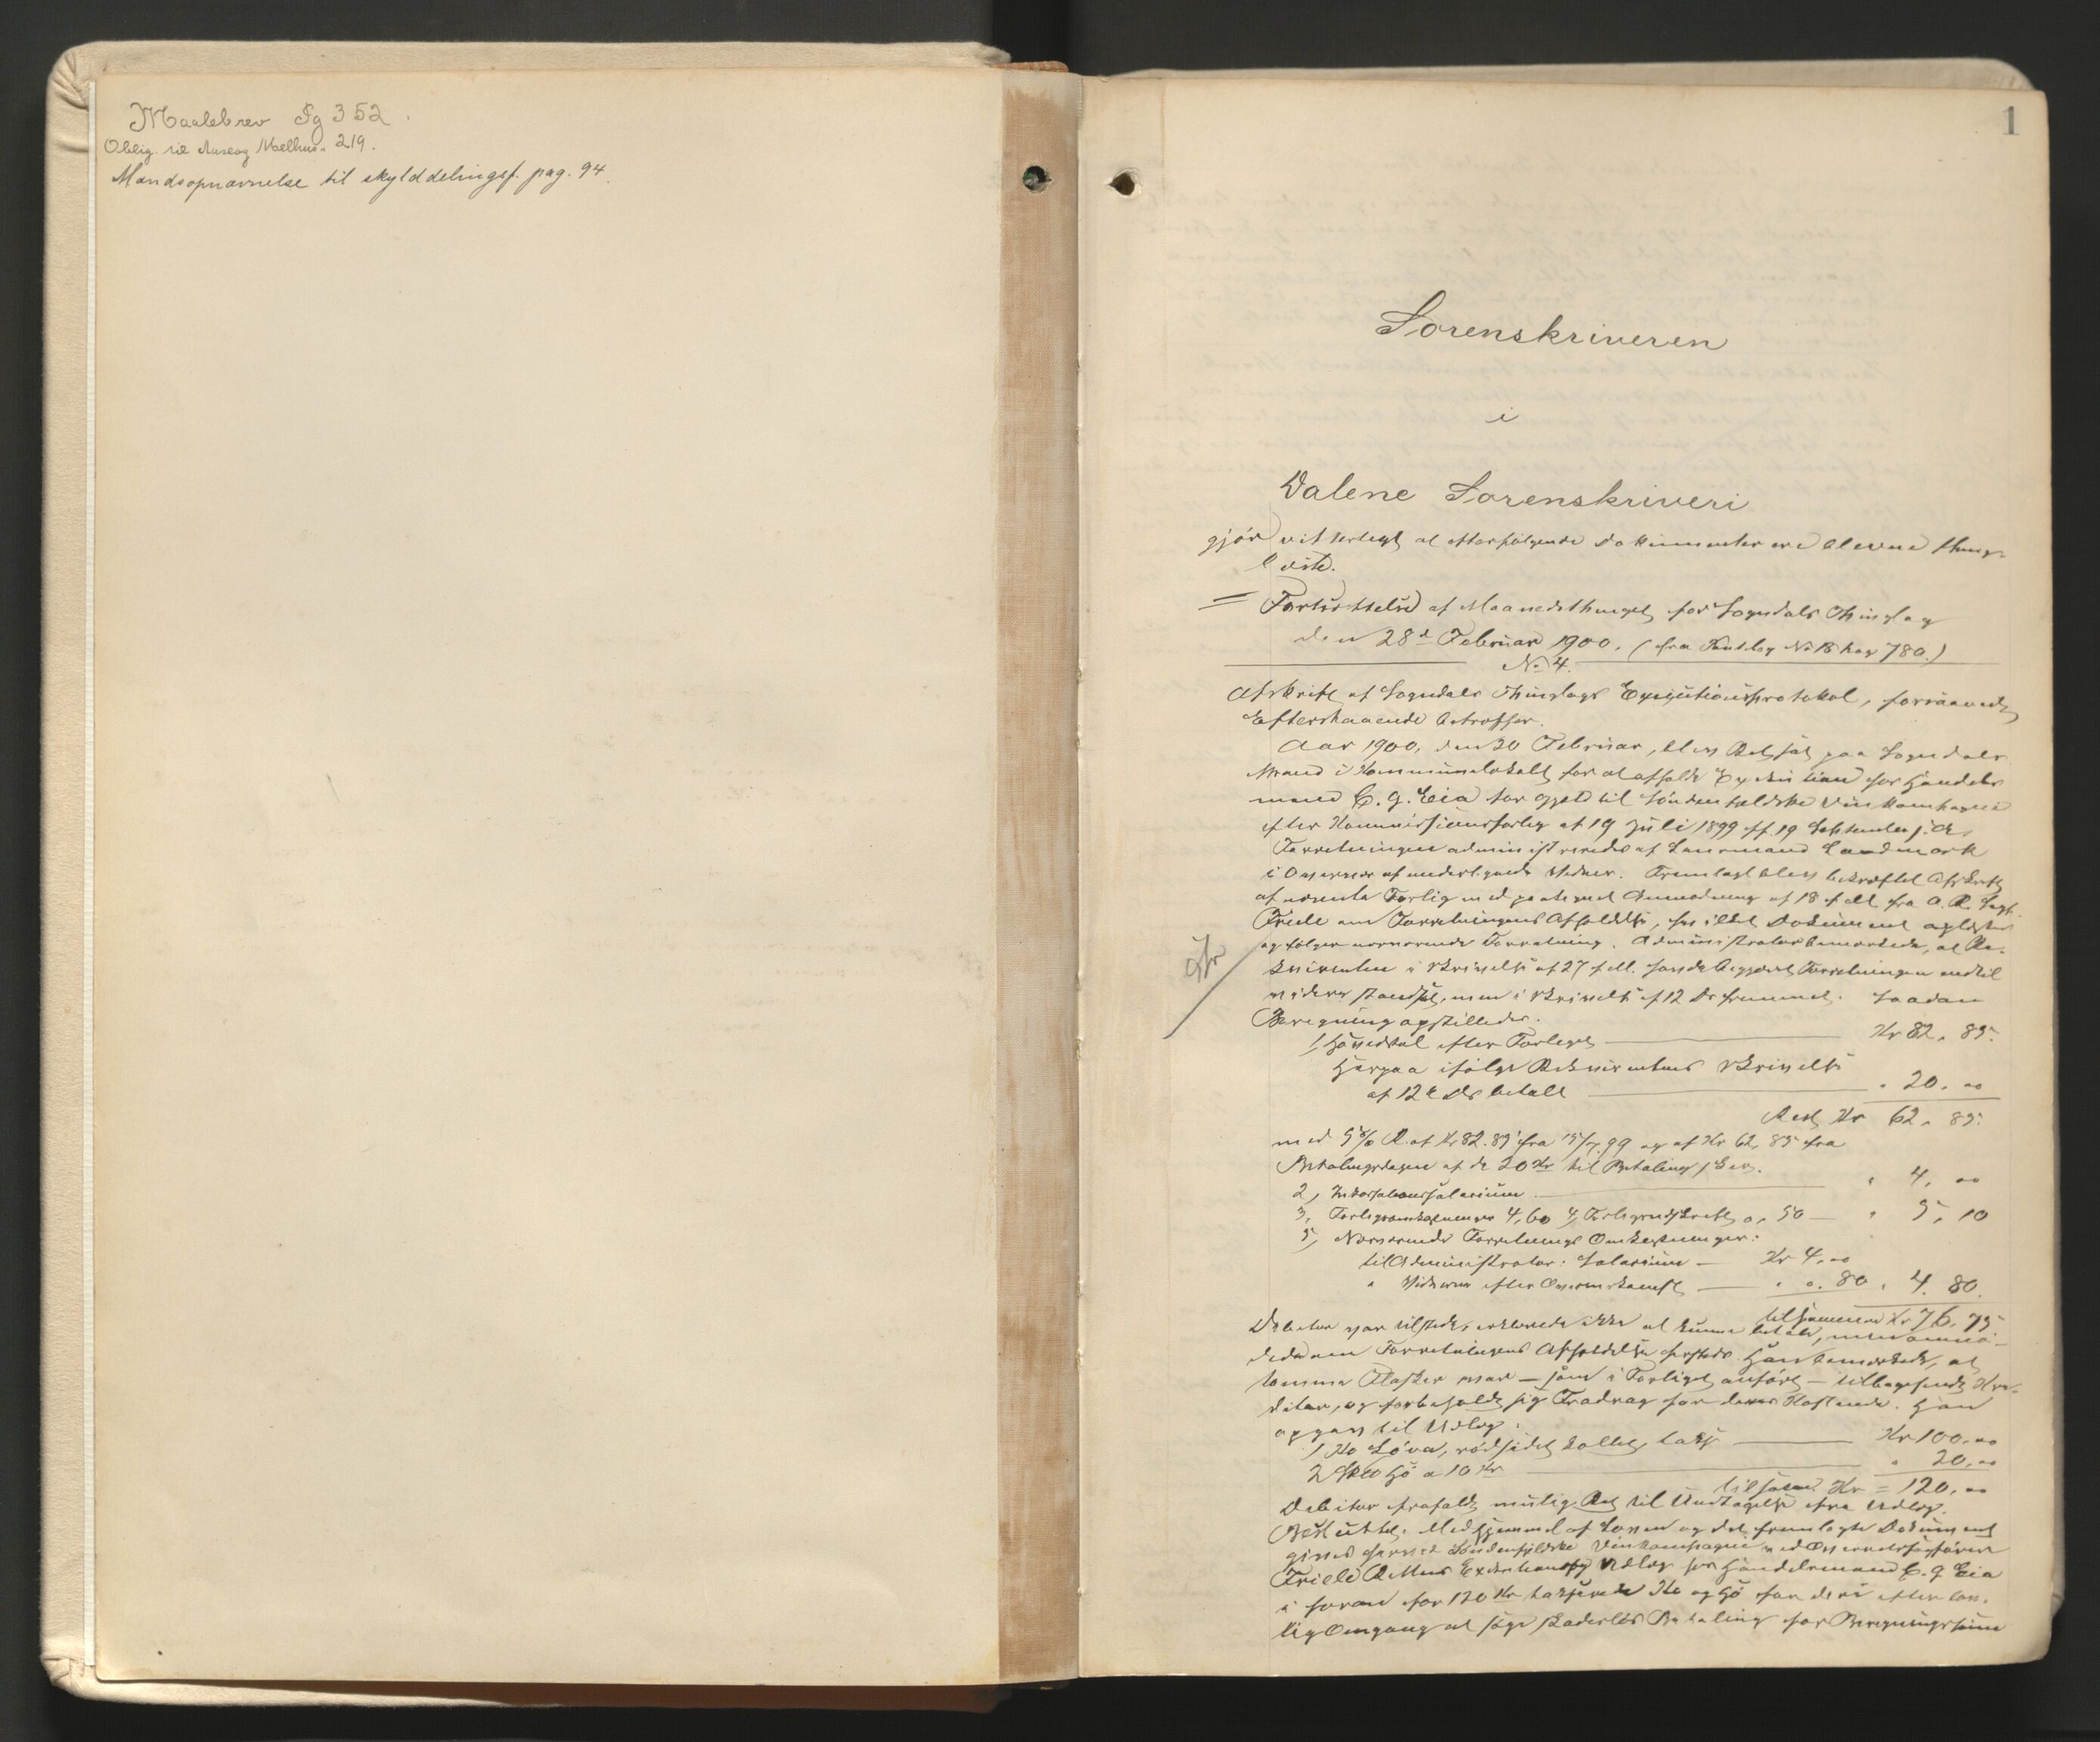 Maalebrev Pg 352.
Oblig. til Aaseog Mælhus. 219.
Mandsopnævnelse til skylddelingsf. pag. 94.
1
Sorenskriveren
i
Dalene Sorenskriveri
gjør vitterligt at efterfølgende Dokumenter ere blevne thing-
læste.
= Fortsættelse af Maanedsthinget for Sogndals Thinglag
den 28de Februar 1900. (fra Pantebog No 18 pag 780.)
No 4.
Afskrift af Sogndals Thinglags Exejutionsprotokol, forsaavidt
Eftersthaaende betræffer.
Aar 1900, den 20 Februar, blev Ret sat paa Sogndals
strand i Kommunelokalet for at afholde Exekution hos Handels
mand C. G. Eia for Gjeld til Søndenfjeldske Vinkompagnie
efter Kommissionsforlig af 19 Juli 1899 ff. 19 September s. A.
Forretningen administreredes af Lensmand Landmark
i Overvær af undertegnede Vidner. Fremlagt blev bekræftet Afskrift
af nævnte Forlig med paategnet Anmodning af 18 f. M. fra O. R. Sagf.
Friele om Forretningens Afholdelse, hvilket Dokument oplæstes
og følger nærværende Forretning. Administrator bemærkede, at Re-
kvirenten i Skrivelse af 27 f. M. havde begjæret Forretningen indtil
videre standset, men i Skrivelse af 12 ds fremmet. Saadan
Beregning opstilledes.
1, Hovedstol efter Forliget Kr 82, 85.
Herpaa ifølge Rekvirentens Skrivelse
af 12te ds betalt " 20. 00
Rest Kr 62, 85.
med 5 % R. af Kr 82.85 fra 15/7.99 og af Kr 62, 85 fra
Betalingsdagen af de 20 Kr til Betaling sker.
2, Inkassationssalarium " 4, 00
3, Forligsomkostninger 4,60 4, Forligsudskrift 0, 50 " 5, 10
5, Nærværende Forretnings Omkostninger:
til Administrator: Salarium Kr 4,00
" Vidnerne efter Overenskomst " 0. 80 " 4. 80
tilsammen Kr 76, 75
Debitor var tilstede, erklærede ikke at kunne betale, men anmo-
dede om Forretningens Afholdelse hersteds. Han bemærkede, at
tomme Flasker var — som i Forliget anført — tilbagesendt Kre-
ditor, og forbeholdt sig Fradrag for deres Kostende. Han
opgav til Udlæg:
1 Ko Løva, rødsidet kollet, taxt Kr 100.00
2 Hø a 10 Kr " 20,00
tilsam. Kr = 120,00
Debitor frafaldt mulig Ret til Undtagelse fra Udlæg.
Besluttet: Med Hjemmel af Loven og det fremlagte Dokument
gives herved Søndenfjeldske Vinkompagnie ved Overretssagfører
Friele Rettens Exekution og Udlæg hos Handelsmand C. G Eia
i foran for 120 Kr taxerede Ko og Hø for deri efter lov-
lig Omgang at søge skadesløs Betaling for Beregningssum